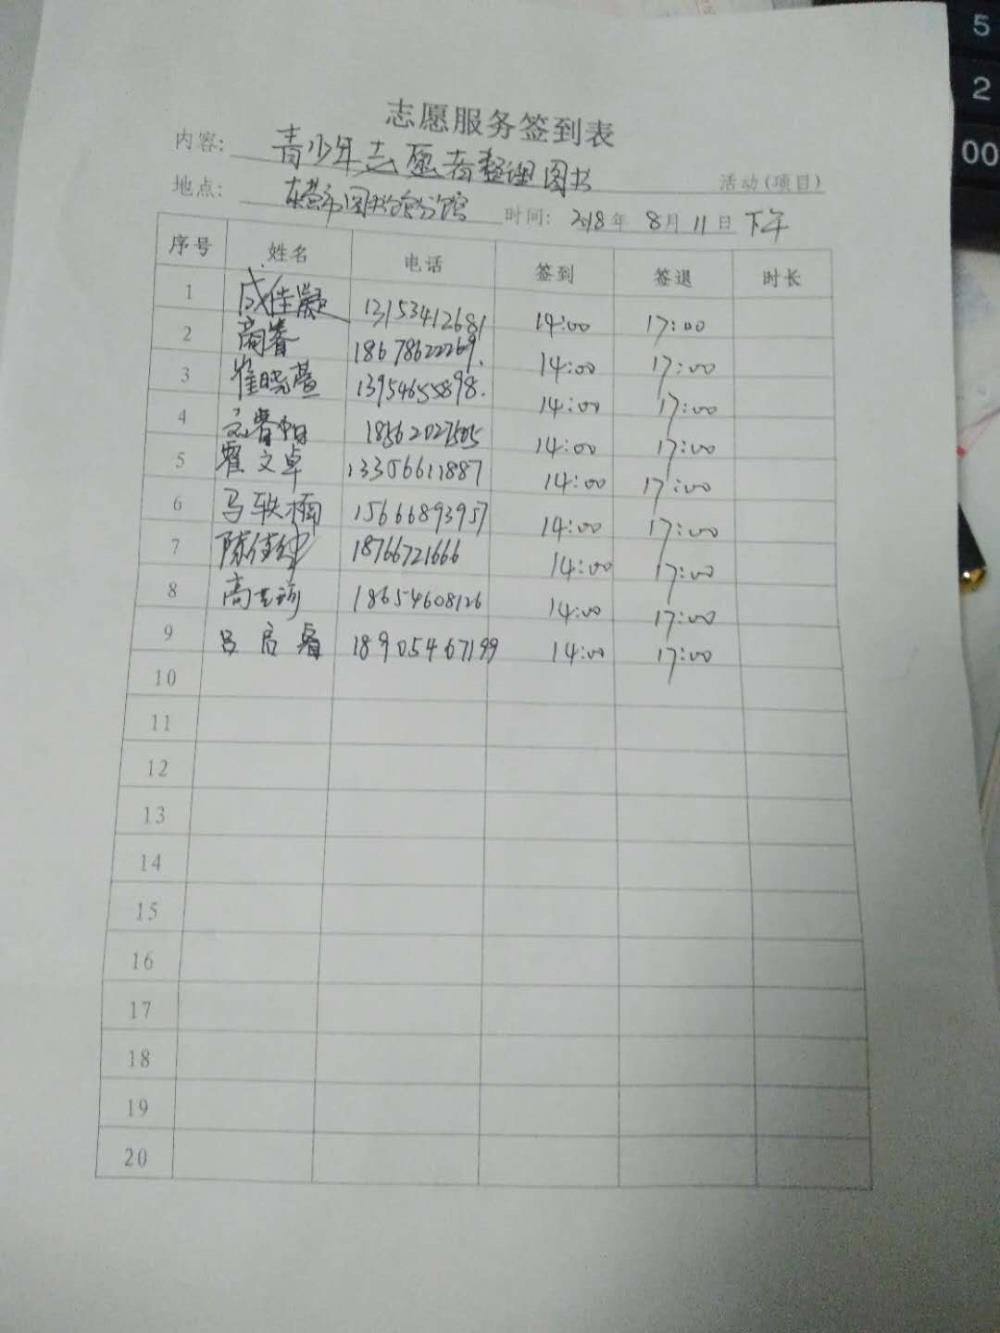 志愿服务签到表
内容: 青少年志愿者整理图书 活动(项目)
地点: 东营市图书馆分馆 时间: 2018年 8月 11日 下午
序号 姓名 电话 签到 签退 时长
1 成佳凝 13153412681 14:00 17:00
2 高睿 18678622269. 14:00 17:00
3 崔晓萱 13954655898. 14:00 17:00
4 14:00 17:00
5 翟文卓 13356611887 14:00 17:00
6 马轶楠 15666893957 14:00 17:00
7 陈佳 18766721666 14:00 17:00
8 高 18654608126 14:00 17:00
9 吕启睿 18905467199 14:00 17:00
10
11
12
13
14
15
16
17
18
19
20
5
2
00